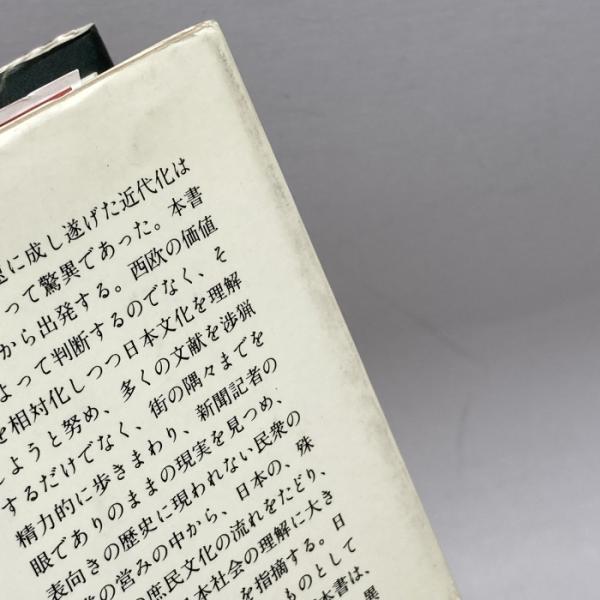 に成し遂げた近代化は
って驚異であった。本書
から出発する。西欧の価値
よって判断するのでなく、そ
を相対化しつつ日本文化を理解
しようと努め、多くの文献を渉猟
するだけでなく、街の隅々までを
精力的に歩きまわり、新聞記者の
眼でありのままの現実を見つめ、
表向きの歴史に現われない民衆の
の営みの中から、日本の、殊
の庶民文化の流れをたどり、
本社会の理解に大き
を指摘する。日
ものとして
本書は、
異